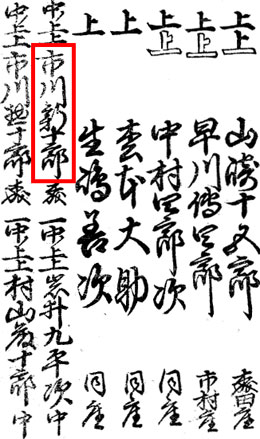 上上 山崎十太郎 森田座
上上 早川傳四郎 市村座
上上 中村四郎次 同座
上 大助 同座
上 生嶋善次 同座
中上上 市川新十郎 一中上上 岩井九平次 中
中上上 市川 十郎 一中上上 村山 十郎 中